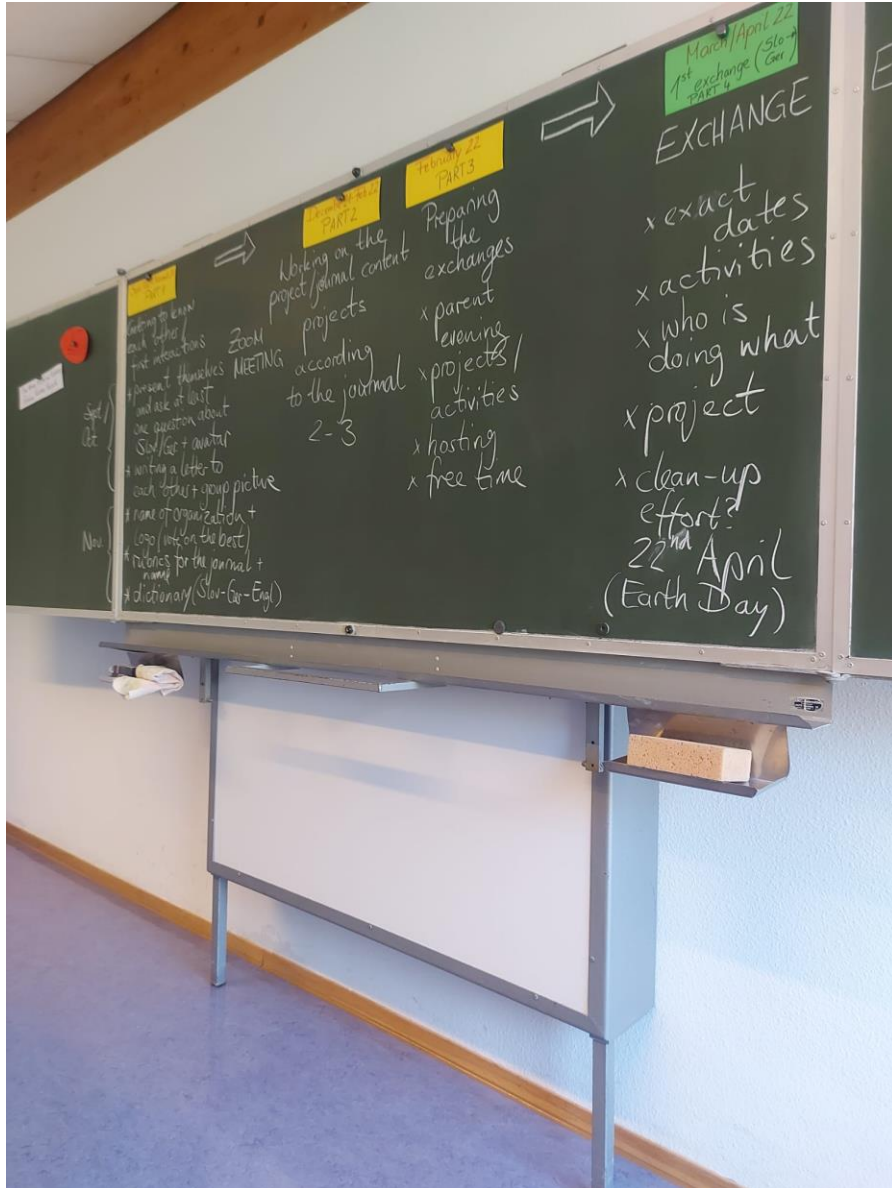 PART 1
Getting to know
each other /
first interactions
ZOOM
MEETING
* present themselves
and ask at least
one question about
Slov/Ger + avatar
* writing a letter to
each other + group picture
* name of organization +
Logo (vote on the best)
* rubrics for the journal +
name
* dictionary (Slov-Ger-Engl)
Sept/
Oct
Nov.
PART 2
Working on the
project/journal content
projects
according
to the journal
2-3
February 22
PART 3
Preparing
the
exchanges
x parent
evening
x projects/
activities
x hosting
x free time
March/April 22
1st exchange (Slo→
Ger)
PART 4
EXCHANGE
x exact
dates
x activities
x who is
doing what
x project
x clean-up
effort?
22nd April
(Earth Day)
E